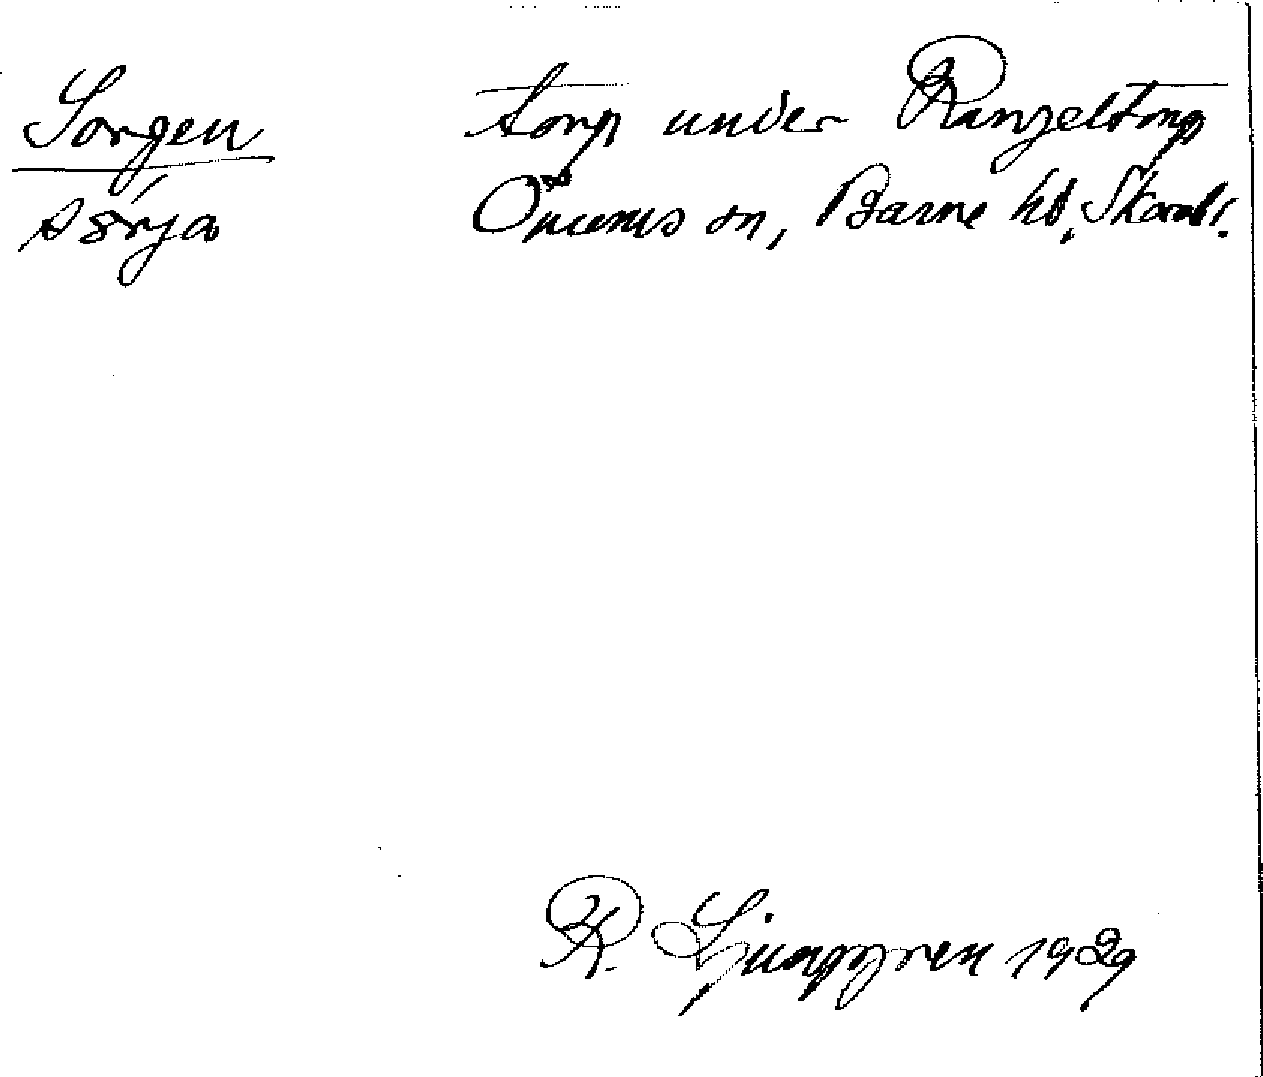 Sorgen torp under Ranzeltorp
Önums sn, Barne hd, Skarab.
R. Ljunggren 1929